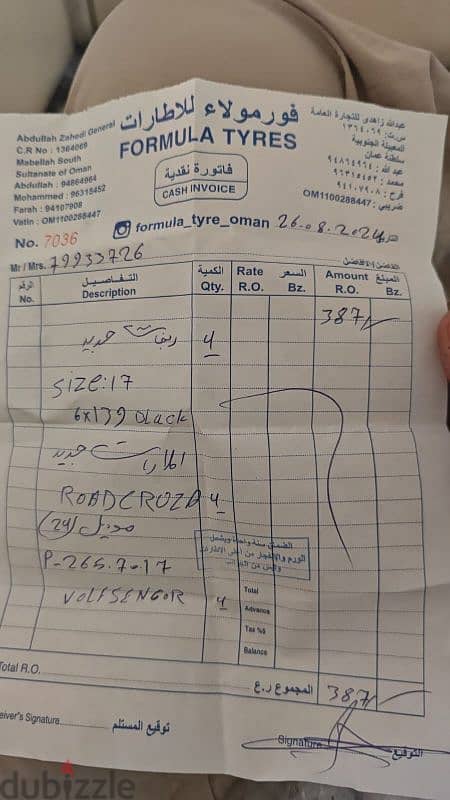 Abdullah Zahedi General
C.R No : 1364069
Mabellah South
Sultanate of Oman
Abdullah : 94864964
Mohammed : 96315452
Farah : 94107908
Vatin : OM1100288447
فورمولاء للاطارات
FORMULA TYRES
فاتورة نقدية
CASH INVOICE
formula_tyre_oman
عبدالله زاهدي للتجارة العامة
س.ت: ١٣٦٤٠٦٩
المعبيلة الجنوبية
سلطنة عمان
عبد الله : ٩٤٨٦٤٩٦٤
محمد : ٩٦٣١٥٤٥٢
فرح : ٩٤١٠٧٩٠٨
ضريبي : OM1100288447
26.08.2024
No. 7036
Mr / Mrs. 79933726
الرقم التفاصيل الكمية Rate السعر Amount المبلغ
No. Description Qty. R.O. Bz. R.O. Bz.
387
رينجات جديد 4
SIZE:17
6x139 black
اطارات جديد
ROADCROZA 4
موديل (24)
P-265.70.17
الضمان سنة واحدة ويشمل
Total
VOLFSENSOR 4
Advance
Tax %5
Balance
Total R.O. المجموع ر.ع 387
Receiver's Signature توقيع المستلم
Signature التوقيع
dubizzle